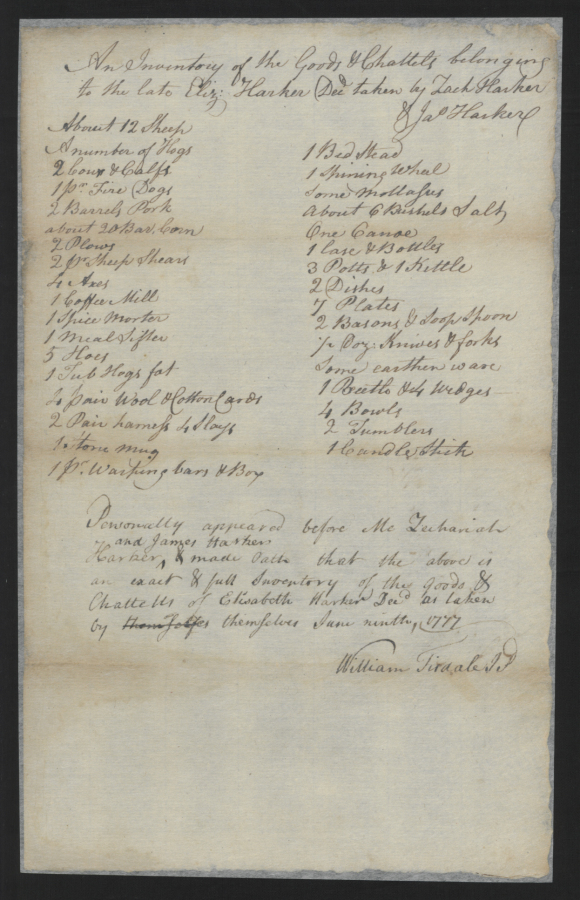 An Inventory of the Goods & Chattels belonging
to the late Eliz: Harker Decd taken by Zach Harker
& Jas Harker
About 12 Sheep
A number of Hogs
2 Cows & Calfs
1 Pr. Fire Dogs
2 Barrels Pork
about 20 Bar. Corn
2 Plows
2 Pr Sheep Shears
4 Axes
1 Coffee Mill
1 Spice Morter
1 Meal Sifter
5 Hoes
1 Tub Hogs fat
4 pair Wool & Cotton Cards
2 Pair harness 4 Slays
1 Stone mug
1 Pr. Warping bars & Box
1 Bed Stead
1 Spining Wheal
Some Mollasus
About 6 Bushels Salt
One Canoe
1 Case & Bottles
3 Potts & 1 Kettle
2 Dishes
7 Plates
2 Basons & Soop Spoon
1/2 Doz: Knives & forks
Some earthen ware
1 Beetle & 4 Wedges
4 Bowls
2 Tumblers
1 Candle Stick
Personally appeared before Me Zechariah
and James Harker
Harker, & made Oath that the above is
an exact & full Inventory of the goods &
Chattells of Elisabeth Harker Decd as taken
by themselves June ninth, 1777
William Tisdale JP